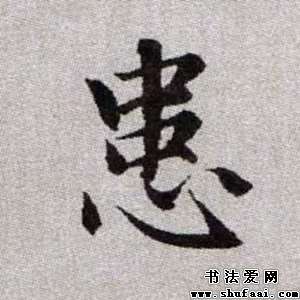 患
书法爱网
www.shufaai.com